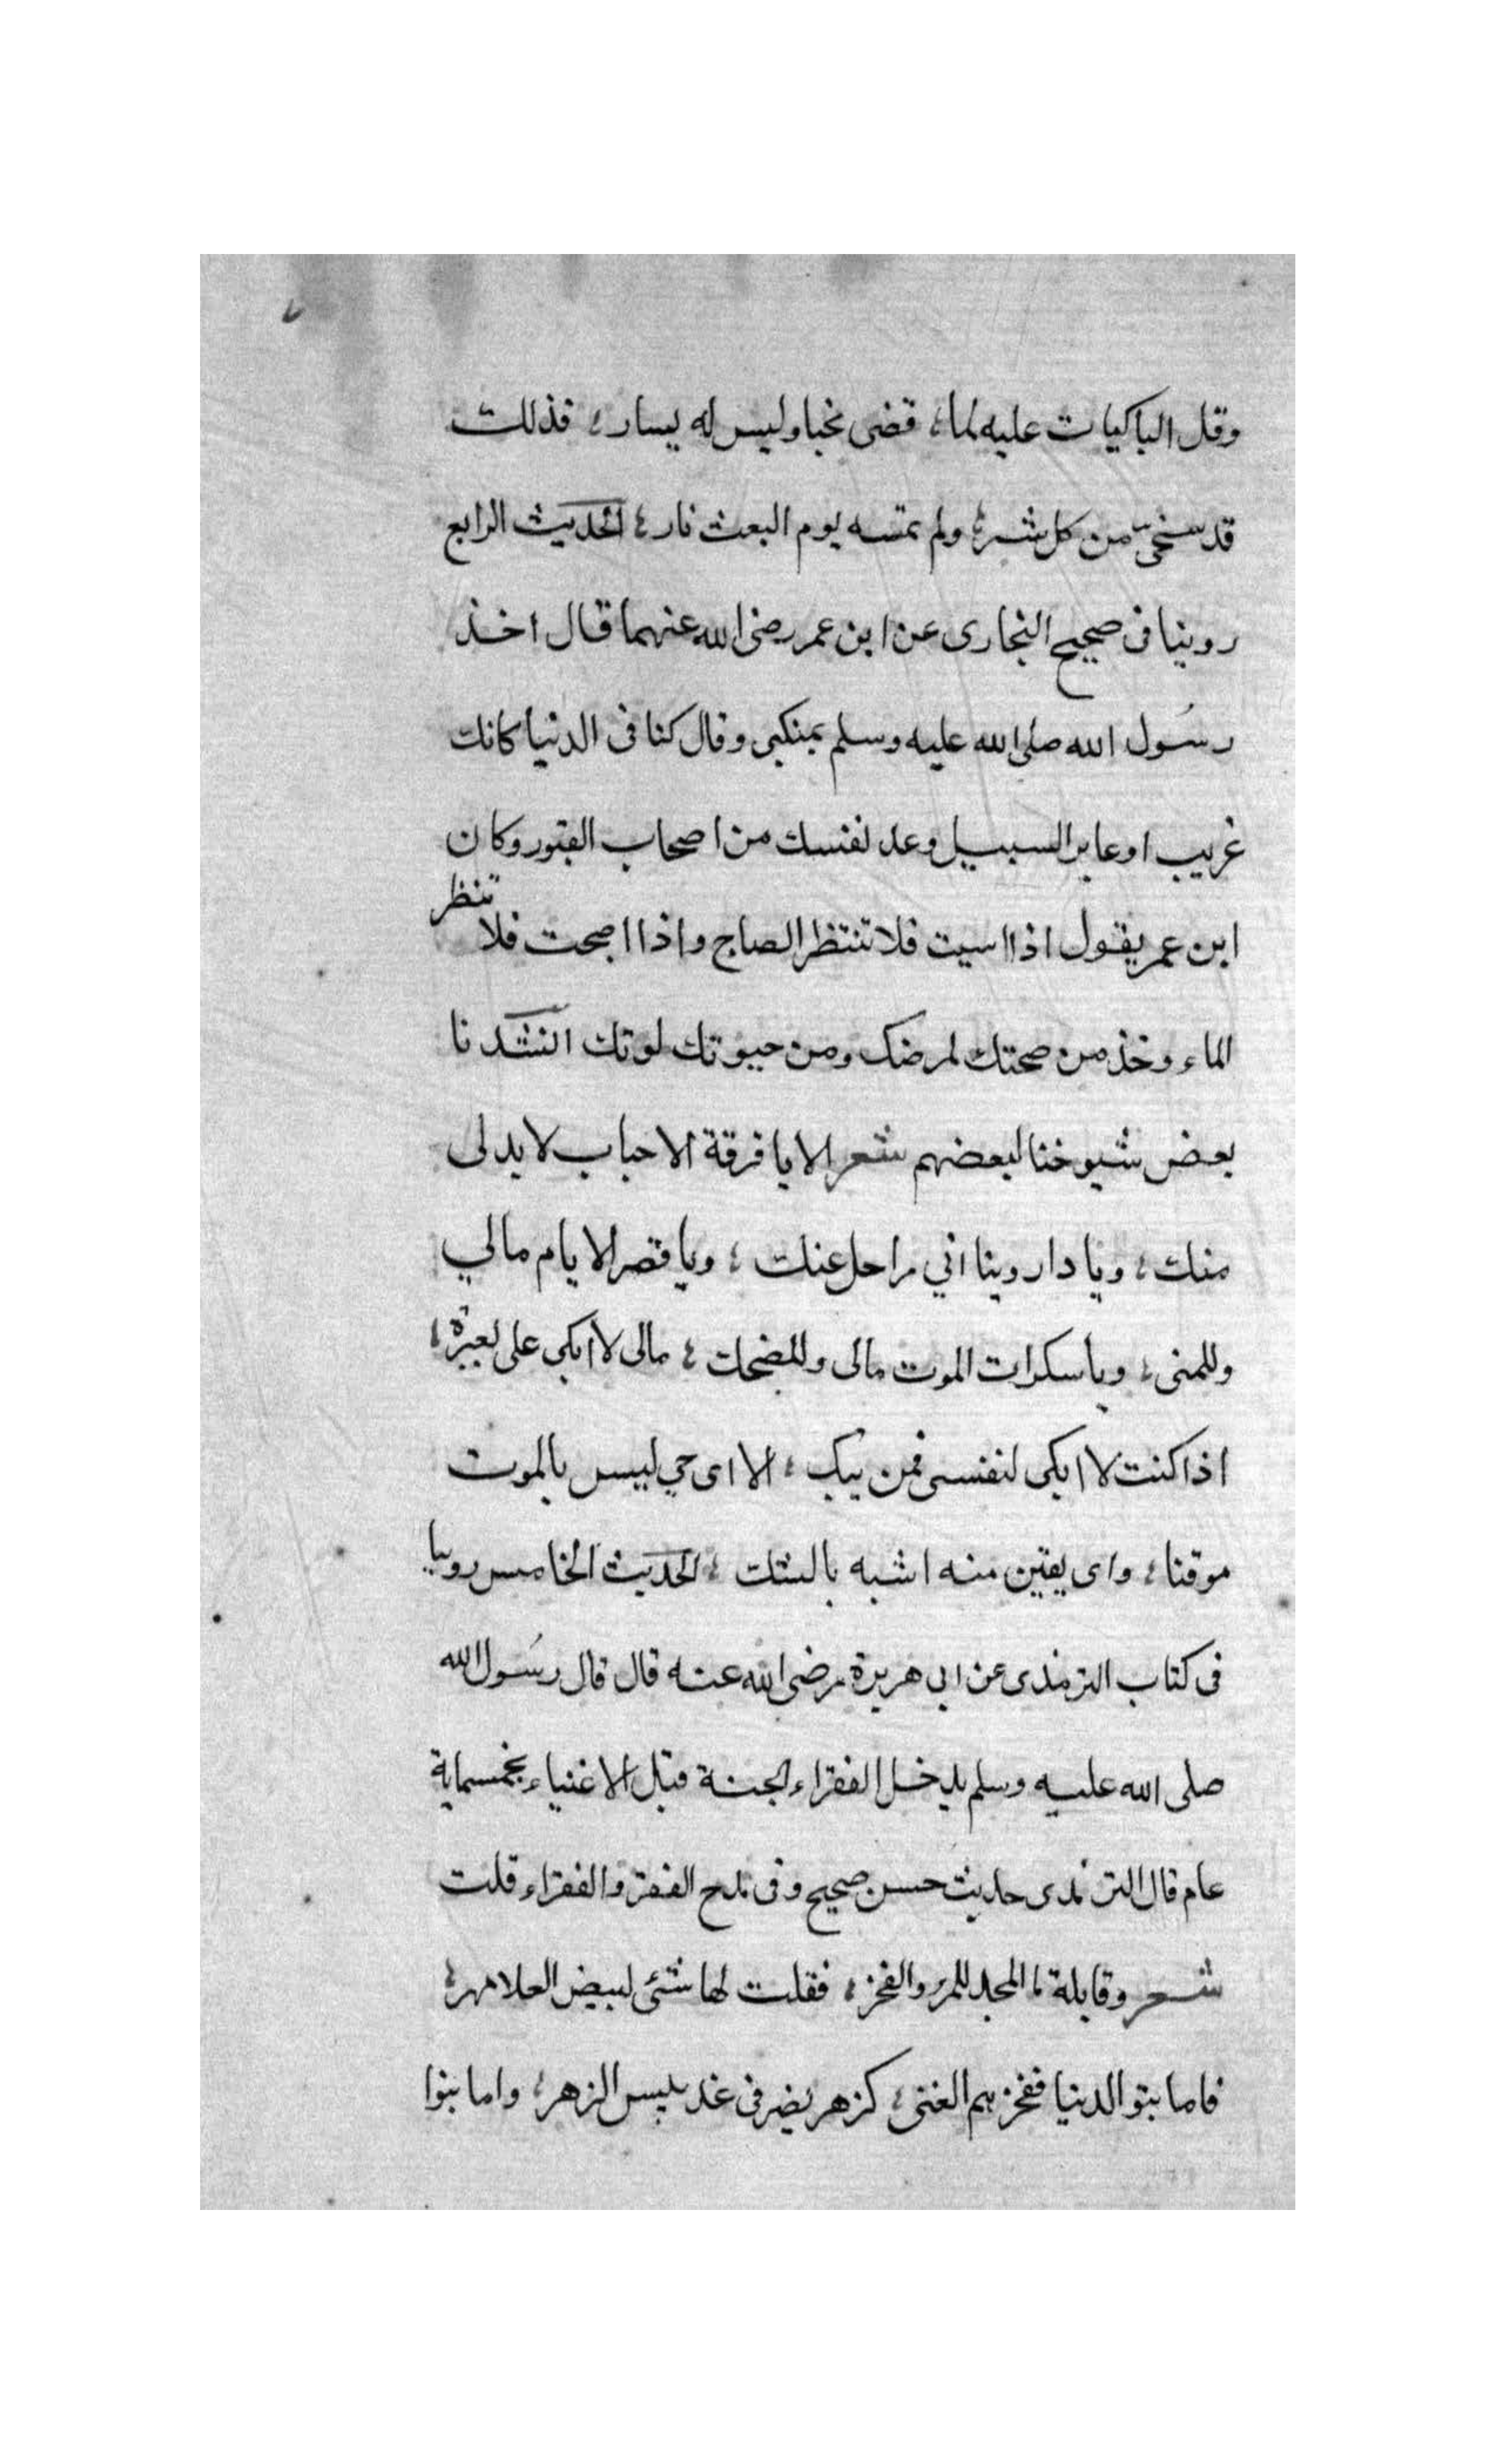 وقل الباكيات عليه لما، قضى نحبا وليس له يسار، فذلك
قد نجى من كل شر، ولم تمسه يوم البعث نار، الحديث الرابع
روينا في صحيح البخارى عن ابن عمر رضي الله عنهما قال اخذ
رسول الله صلى الله عليه وسلم بمنكبى وقال كنا فى الدنيا كانك
غريب او عابر السبيل وعد نفسك من اصحاب القبور وكان
ابن عمر يقول اذا اسيت فلا تنتظر الصباح واذا اصبحت فلا تنظر
الماء وخذ من صحتك لمرضك ومن حيوتك لموتك انشدنا
بعض شيوخنا لبعضهم شعر الا يا فرقة الاحباب لا بد لى
منك، ويا دار دنيا اني راحل عنك، ويا قصر الايام مالي
وللمنى، ويا سكرات الموت مالى وللضحك، مالى لا ابكى على لعبرة،
اذا كنت لا ابكى لنفسى فمن يبك، الا اى حي ليس بالموت
موقنا، واى يقين منه اشبه بالشك، الحديث الخامس روينا
فى كتاب الترمذى عن ابى هريرة رضى الله عنه قال قال رسول الله
صلى الله عليه وسلم يدخل الفقراء الجنة قبل الاغنياء بخمسماية
عام قال الترمذى حديث حسن صحيح وفى مدح الفقر والفقراء قلت
شعر وقايلة ما المجد للمرء والفخر، فقلت لها شئى لبيض العلا مهر،
فاما بنو الدنيا ففخرهم الغنى، كزهر نضر فى غد ييبس الزهر، واما بنوا